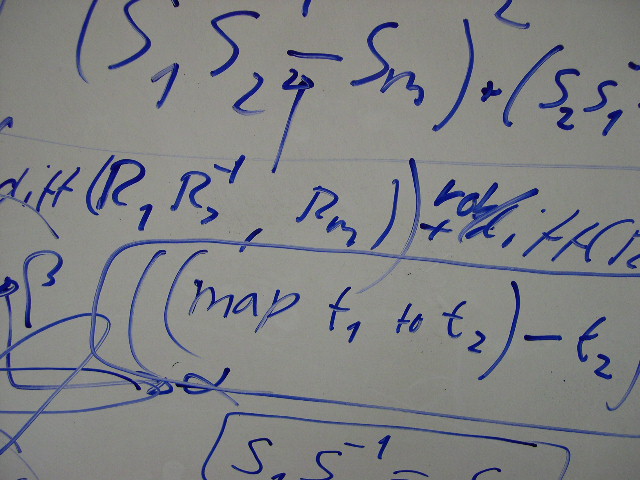 (S₁ S₂ - Sₘ)² + (S₂ S₁⁻
diff(R₁ R₂⁻¹, Rₘ) + rot diff(R₂
β
((map t₁ to t₂) - t₂)
α
S₁ S⁻¹